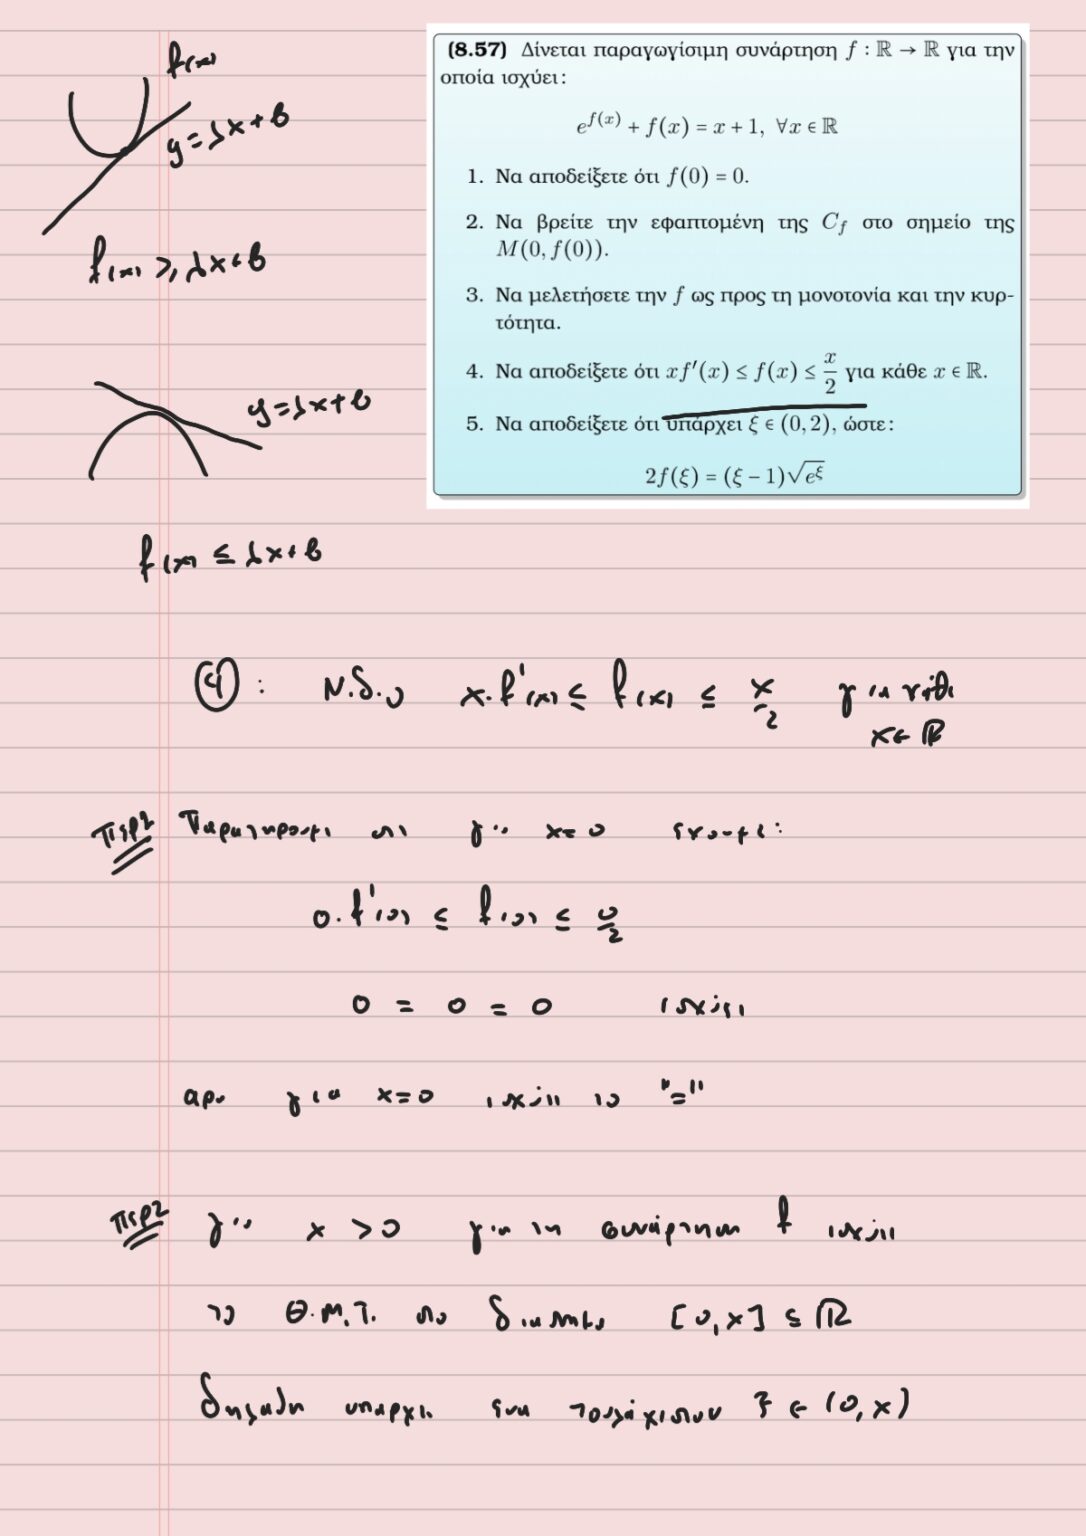 f(x)
y = λx + β
f(x) ≥ λx + β
y = λx + β
f(x) ≤ λx + β
(8.57) Δίνεται παραγωγίσιμη συνάρτηση f : ℝ → ℝ για την
οποία ισχύει:
e^{f(x)} + f(x) = x + 1, ∀x ∈ ℝ
1. Να αποδείξετε ότι f(0) = 0.
2. Να βρείτε την εφαπτομένη της C_f στο σημείο της
M(0, f(0)).
3. Να μελετήσετε την f ως προς τη μονοτονία και την κυρ-
τότητα.
4. Να αποδείξετε ότι xf′(x) ≤ f(x) ≤ x/2 για κάθε x ∈ ℝ.
5. Να αποδείξετε ότι υπάρχει ξ ∈ (0, 2), ώστε:
2f(ξ) = (ξ − 1)√e^ξ
④ : Ν.δ.ο x·f'(x) ≤ f(x) ≤ x/2 για κάθε
x ∈ ℝ
Παρατηρουμε οτι για x = 0 εχουμε:
0·f'(0) ≤ f(0) ≤ 0/2
0 = 0 = 0 ισχύει
αρα για x = 0 ισχύει το "="
Περ2 για x > 0 για τη συνάρτηση f ισχύει
το Θ.Μ.Τ. στο διαστημα [0, x] ⊆ ℝ
δηλαδη υπαρχει ενα τουλάχιστον ξ ∈ (0, x)